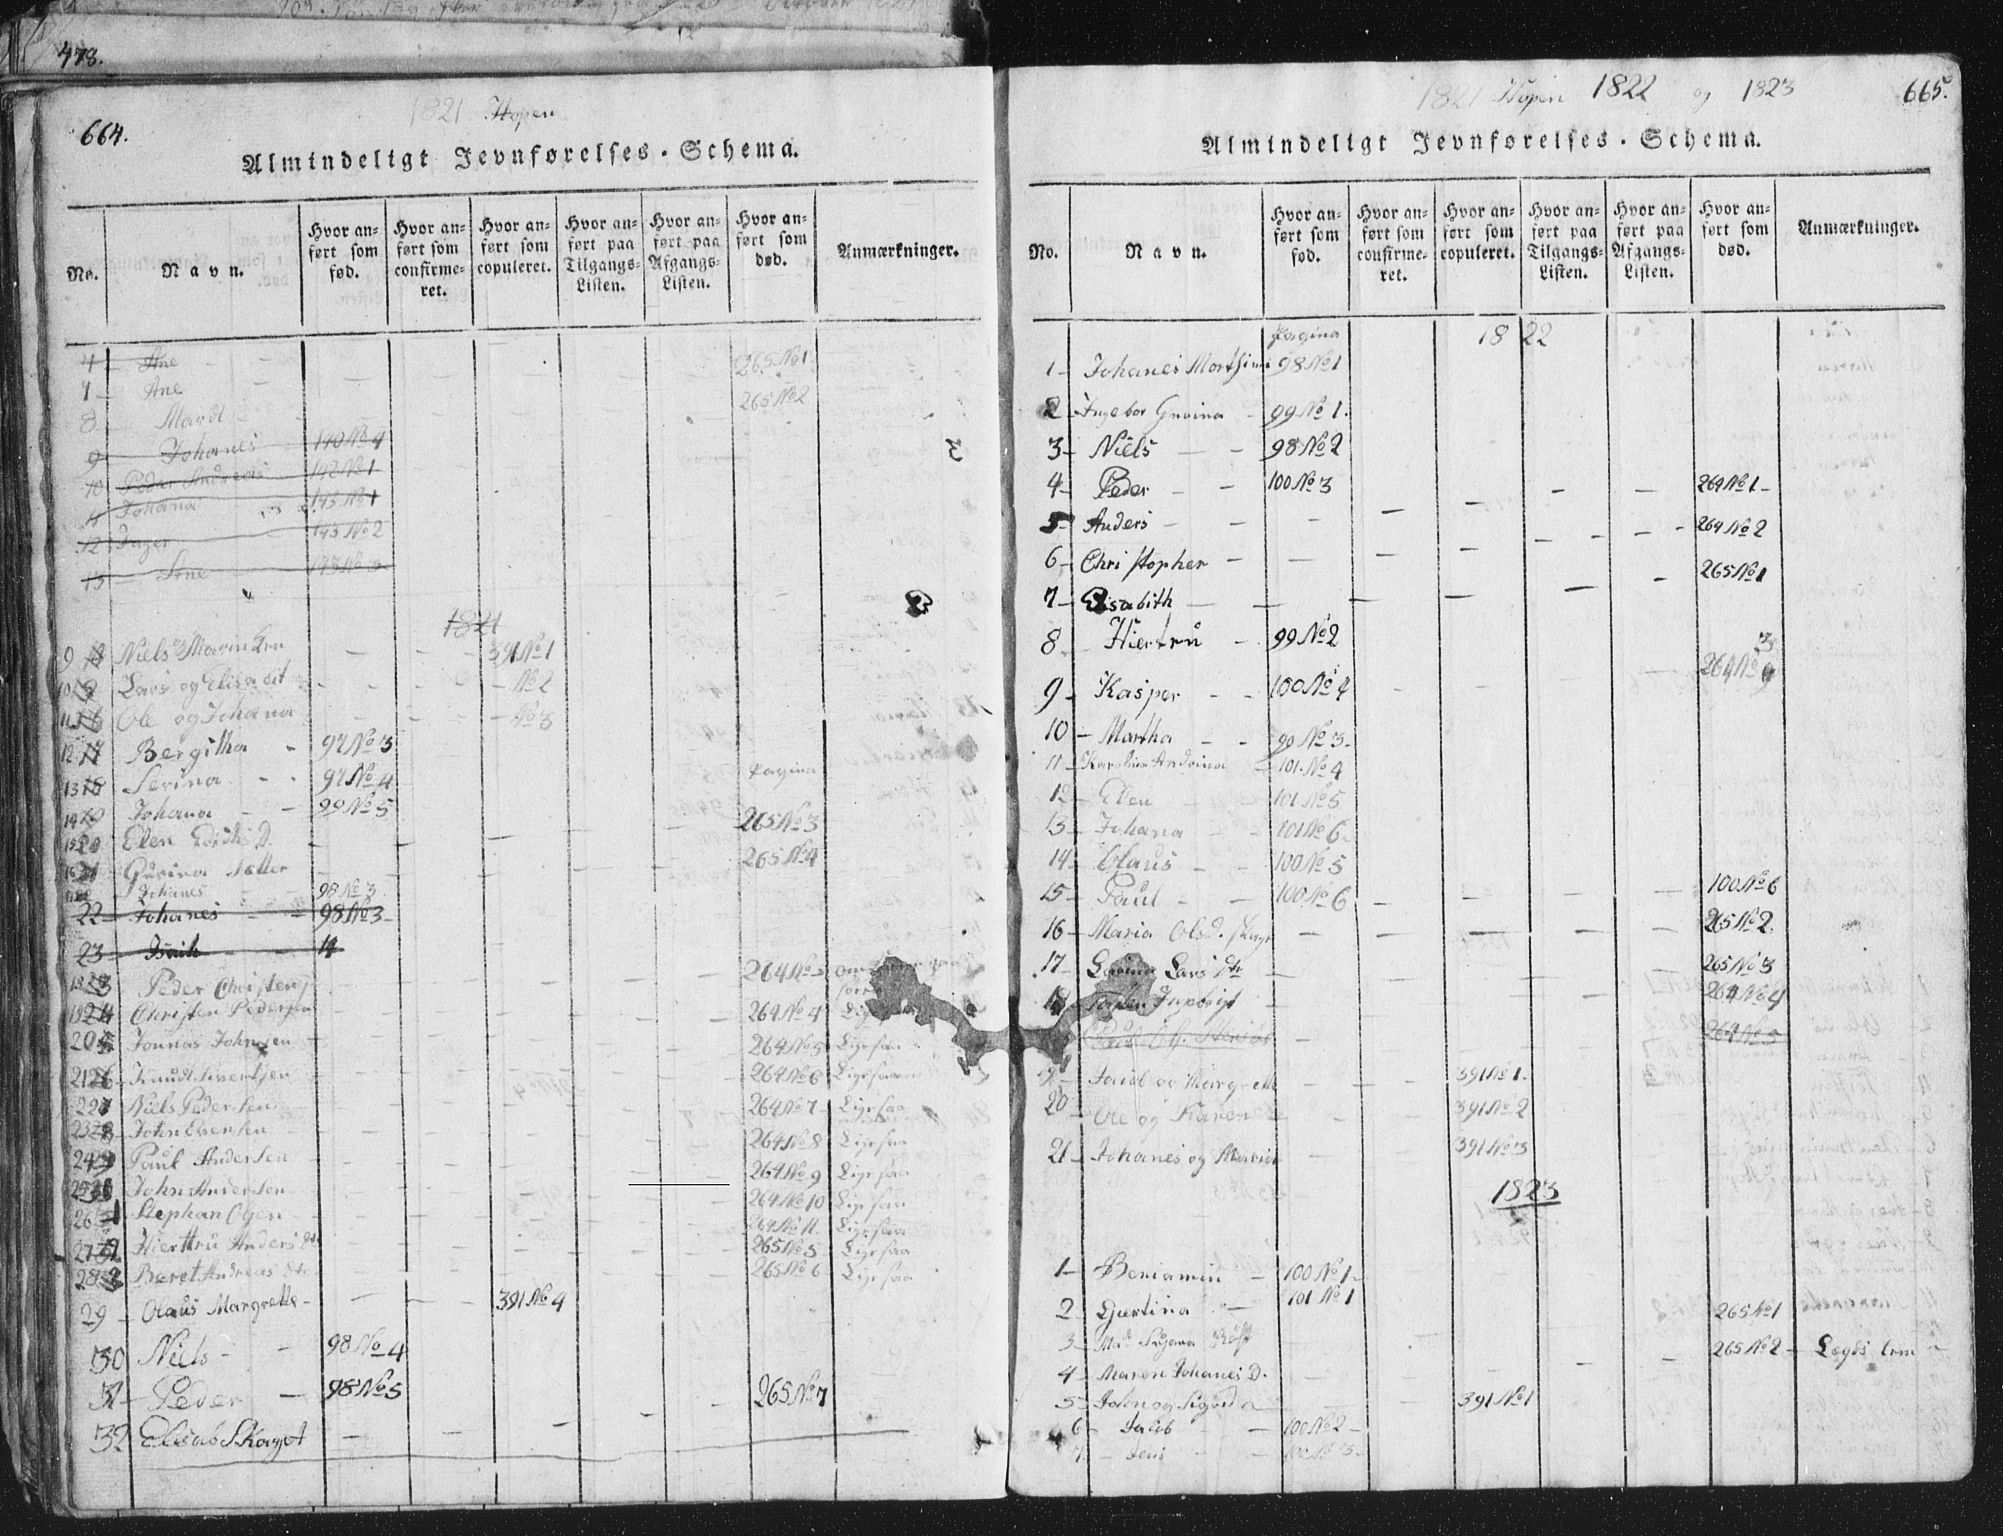 478.
664.
1821 Hopen
Almindeligt Jevnførelses-Schema.
No.
Navn.
Hvor an-
ført som
fød.
Hvor an-
ført som
confirme-
ret.
Hvor an-
ført som
copuleret.
Hvor an-
ført paa
Tilgangs-
Listen.
Hvor an-
ført paa
Afgangs-
Listen.
Hvor an-
ført som
død.
Anmærkninger.
4 Ane 265 No 1
7 Ane 265 No 2
8 Mardt
9 Johanes 140 No 4
10 Peder Andreas 142 No 1
11 Johana 143 No 1
12 Inger 143 No 2
13 Ane 143 No 3
1821
9 Niels Marin 391 No 1
10 Lars og Elisabit No 2
11 Ole og Johana No 3
12 Bergitha 97 No 3
13 Serina 97 No 4
Pagina
14 Johana 99 No 5
15 Elen D. 265 No 3
16 Gurina Sætter 265 No 4
Johanes 98 No 3
22 Johanes 98 No 3
23
18 Peder Christens 264 No 3
19 Christen Pedersen 264 No 4
20 Jonnas Johnsen 264 No 5 Ligesaa
21 Knudt Sivertsen 264 No 6 Ligesaa
22 Niels Pedersen 264 No 7 Ligesaa
23 John Evensen 264 No 8 Ligesaa
24 Paul Andersen 264 No 9 Ligesaa
25 John Andersen 264 No 10 Ligesaa
26 Stephan Olsen 264 No 11 Ligesaa
27 Hiertru Anders Dtr 265 No 5 Ligesaa
28 Beret Andreas Dtr 265 No 6 Ligesaa
29 Olaus Margrethe 391 No 4
30 Niels 98 No 4
31 Peder 98 No 5 265 No 7
32 Elisab Skaget
1821 Hopen 1822 og 1823
665.
Almindeligt Jevnførelses-Schema.
No.
Navn.
Hvor an-
ført som
fød.
Hvor an-
ført som
confirme-
ret.
Hvor an-
ført som
copuleret.
Hvor an-
ført paa
Tilgangs-
Listen.
Hvor an-
ført paa
Afgangs-
Listen.
Hvor an-
ført som
død.
Anmærkninger.
Pagina 1822
1 Johanes Morthinus 98 No 1
2 Ingebor Gurina 99 No 1.
3 Niels 98 No 2
4 Peder 100 No 3
264 No 1
5 Anders
264 No 2
6 Christopher
265 No 1
7 Elisabith
8 Hiertru 99 No 2
264 No 3
9 Kasper 100 No 4
10 Martha 99 No 3
11 Karolina Andrina 101 No 4
12 Elen 101 No 5
13 Johana 101 No 6
14 Olaus 100 No 5
15 Paul 100 No 6
100 No 6
16 Maria Olsd.
265 No 2
17 Lars Dtr
265 No 3
18
264 No 4
264 No 5
Jacob og Margreth 391 No 1.
20 Ole og Karen 391 No 2
21 Johanes og Maria 391 No 3
1823
1 Beniamin 100 No 1
2 Gurtina 101 No 1
265 No 1
3
265 No 2
4 Maren Johanes D.
5 John og Sigrid 391 No 1
6 Jakob 100 No 2
7 Jens 100 No 3